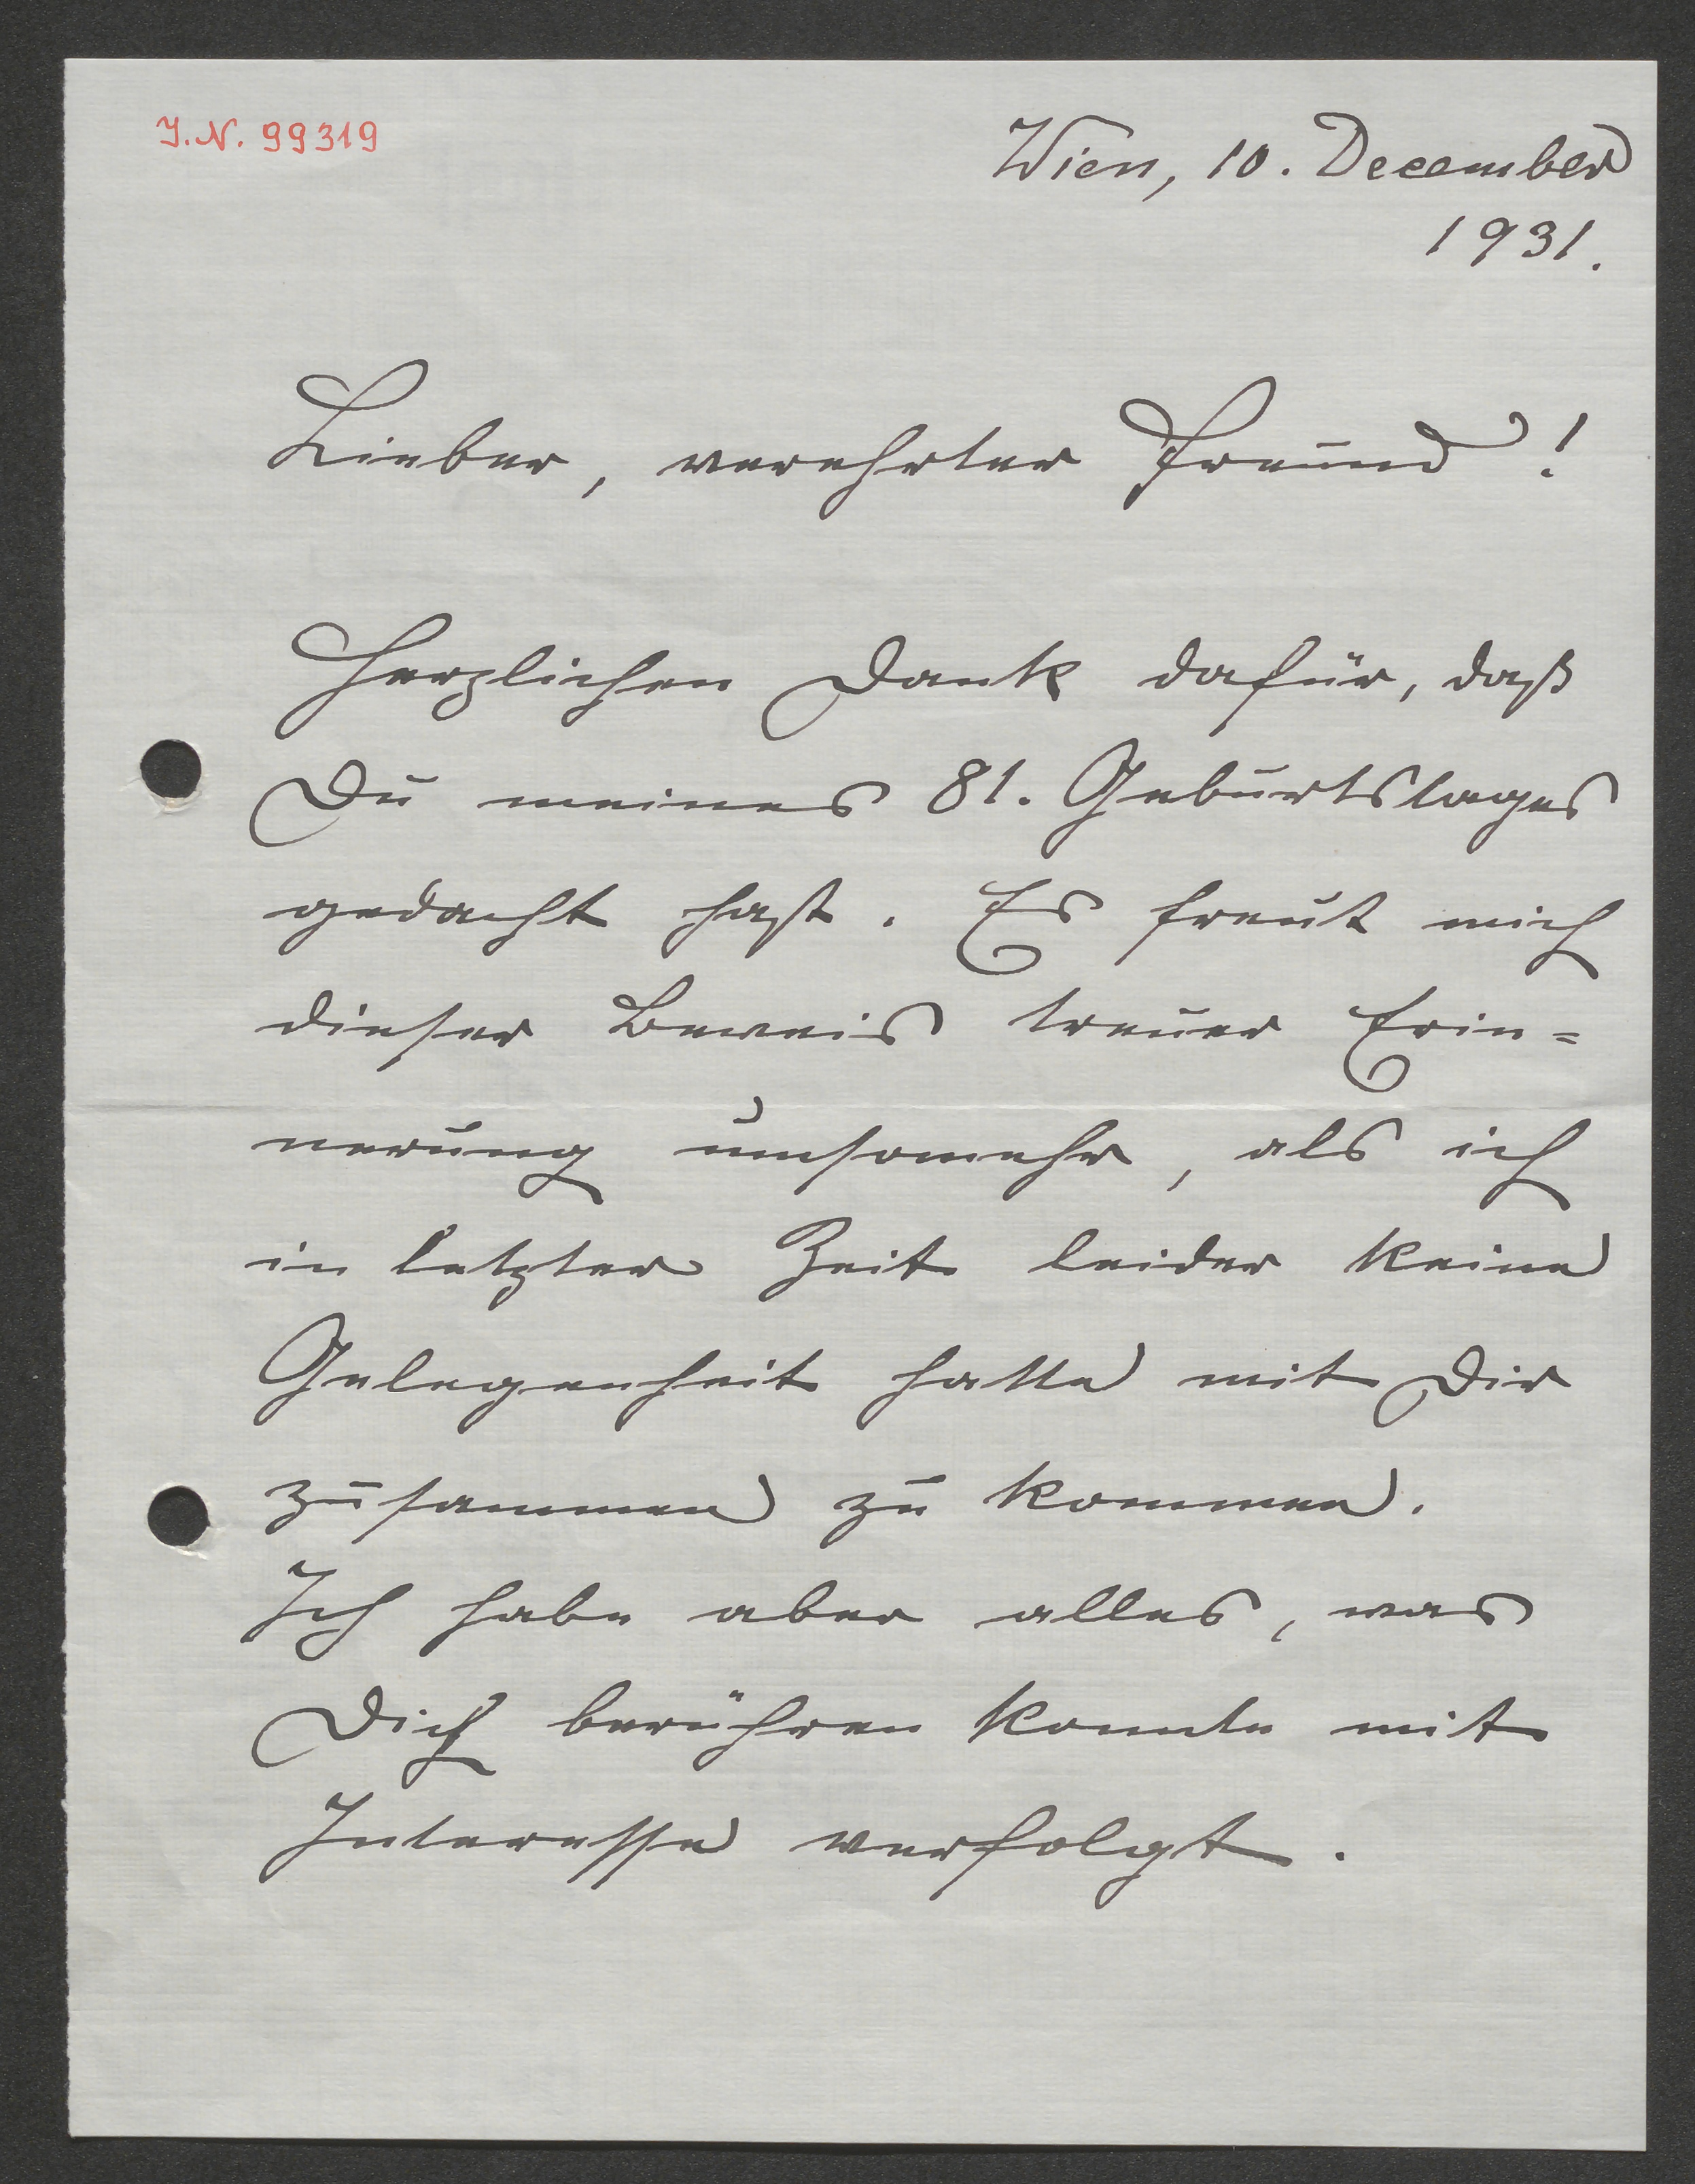 J.N. 99319
Wien, 10. December
1931.
Lieber, verehrter Freund!
Herzlichen Dank dafür, daß
Du meines 81. Geburtstages
gedacht hast. Es freut mich
dieser Beweis treuer Erin=
nerung umsomehr, als ich
in letzter Zeit leider keine
Gelegenheit hatte mit Dir
zusammen zu kommen.
Ich habe aber alles, was
Dich berühren konnte mit
Interesse verfolgt.